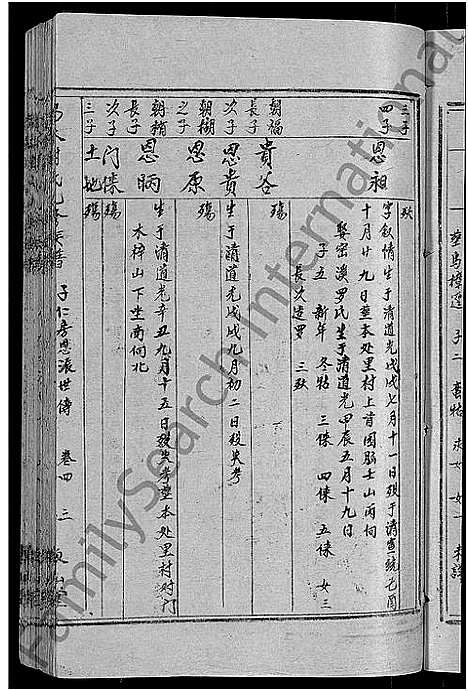 三子 殀
四子 恩祖 字叙情生于清道光戊戌七月十一日殁于清宣統己酉
十月廿九日葬本处里村上首園腦士山丙向
娶密溪罗氏生于清道光甲辰五月十九日
子五 新年 冬牯 三俫 四俫 五俫 女三
長次适罗 三殀
朝福長子 貴谷 殤
次子 恩贵 生于清道光戊戌九月初二日殁失考
朝楜之子 恩原 殤
朝梢長子 恩昞 生于清道光辛丑九月十五日殁失考葬本处里村对门
木梓山下坐南向北
次子 门俫 殤
三子 土地 殤
子仁房恩派世傳 卷四 三
FamilySearch International